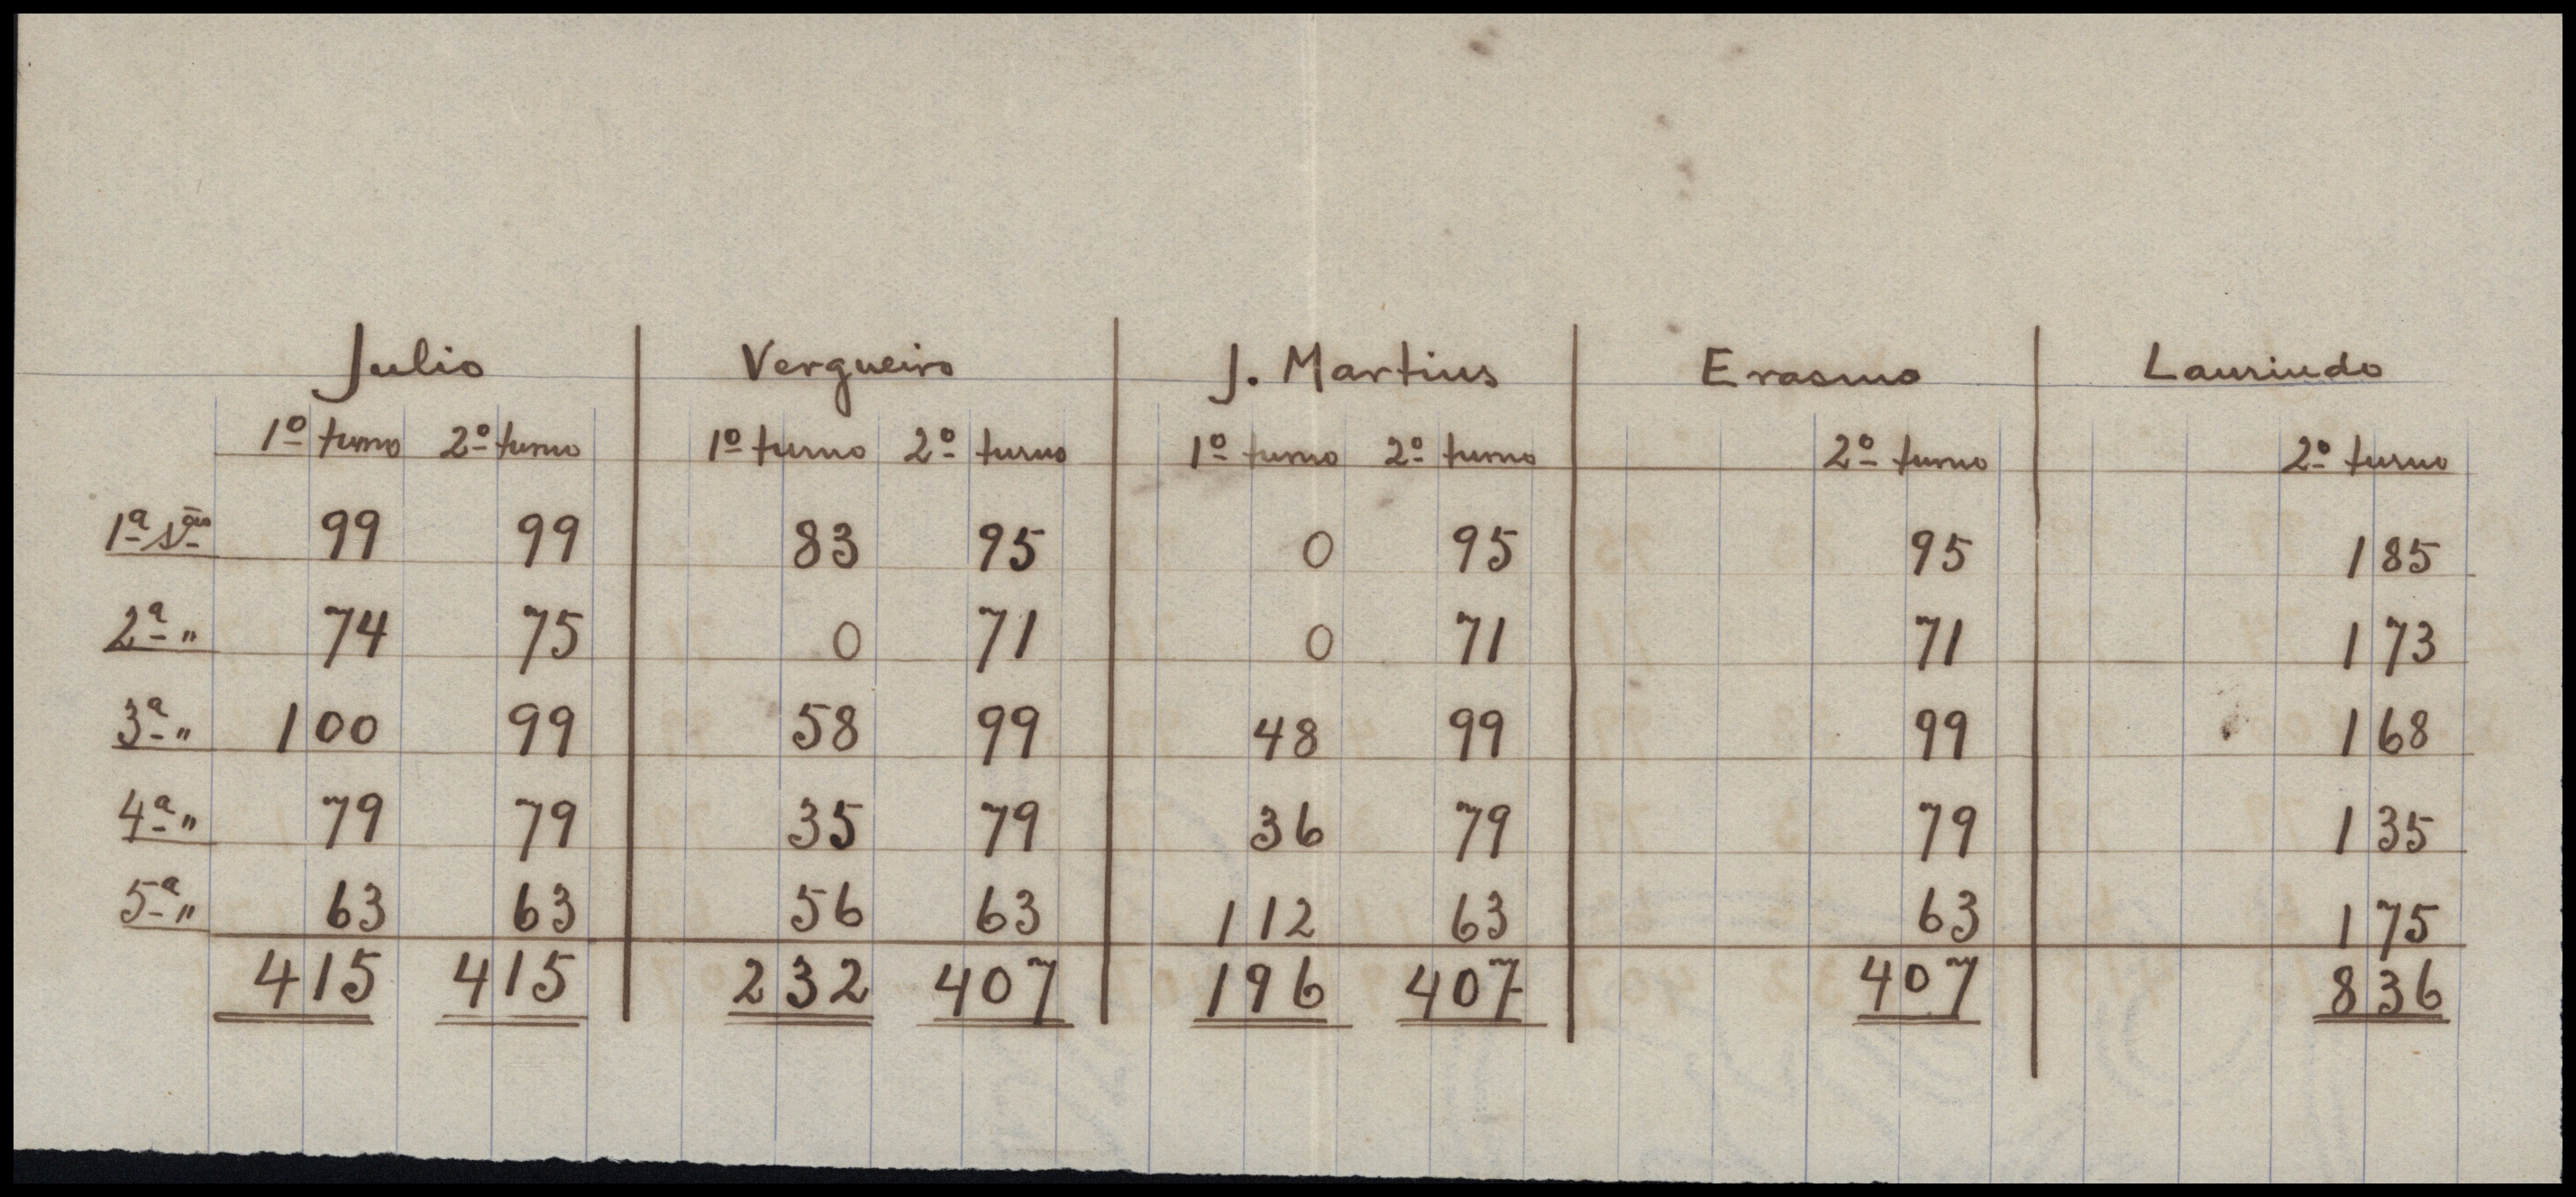 Julio Vergueiro J. Martins Erasmo Laurindo
1º turno 2º turno 1º turno 2º turno 1º turno 2º turno 2º turno 2º turno
1ª sção 99 99 83 95 0 95 95 185
2ª " 74 75 0 71 0 71 71 173
3ª " 100 99 58 99 48 99 99 168
4ª " 79 79 35 79 36 79 79 135
5ª " 63 63 56 63 112 63 63 175
415 415 232 407 196 407 407 836